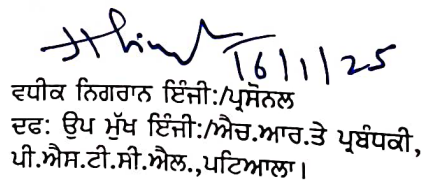 16/1/25
ਵਧੀਕ ਨਿਗਰਾਨ ਇੰਜੀ:/ਪ੍ਰਸੋਨਲ
ਦਫ: ਉਪ ਮੁੱਖ ਇੰਜੀ:/ਐਚ.ਆਰ.ਤੇ ਪ੍ਰਬੰਧਕੀ,
ਪੀ.ਐਸ.ਟੀ.ਸੀ.ਐਲ.,ਪਟਿਆਲਾ।